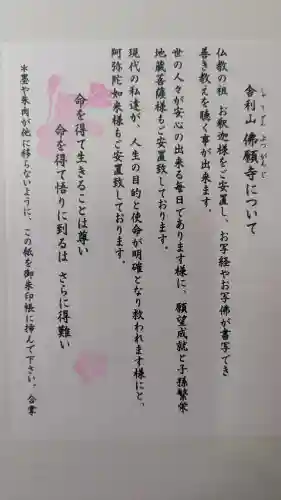 しゃりざん ぶつがんじ
舎利山 佛願寺について
仏教の祖 お釈迦様をご安置し、お写経やお写佛が書写でき
善き教えを聴く事が出来ます。
世の人々が安心の出来る毎日であります様に、願望成就と子孫繁栄
地蔵菩薩様もご安置致しております。
現代の私達が、人生の目的と使命が明確となり救われます様にと、
阿弥陀如来様もご安置致しております。
命を得て生きることは尊い
命を得て悟りに到るは さらに得難い
*墨や朱肉が他に移らないように、この紙を御朱印帳に挿んで下さい。合掌